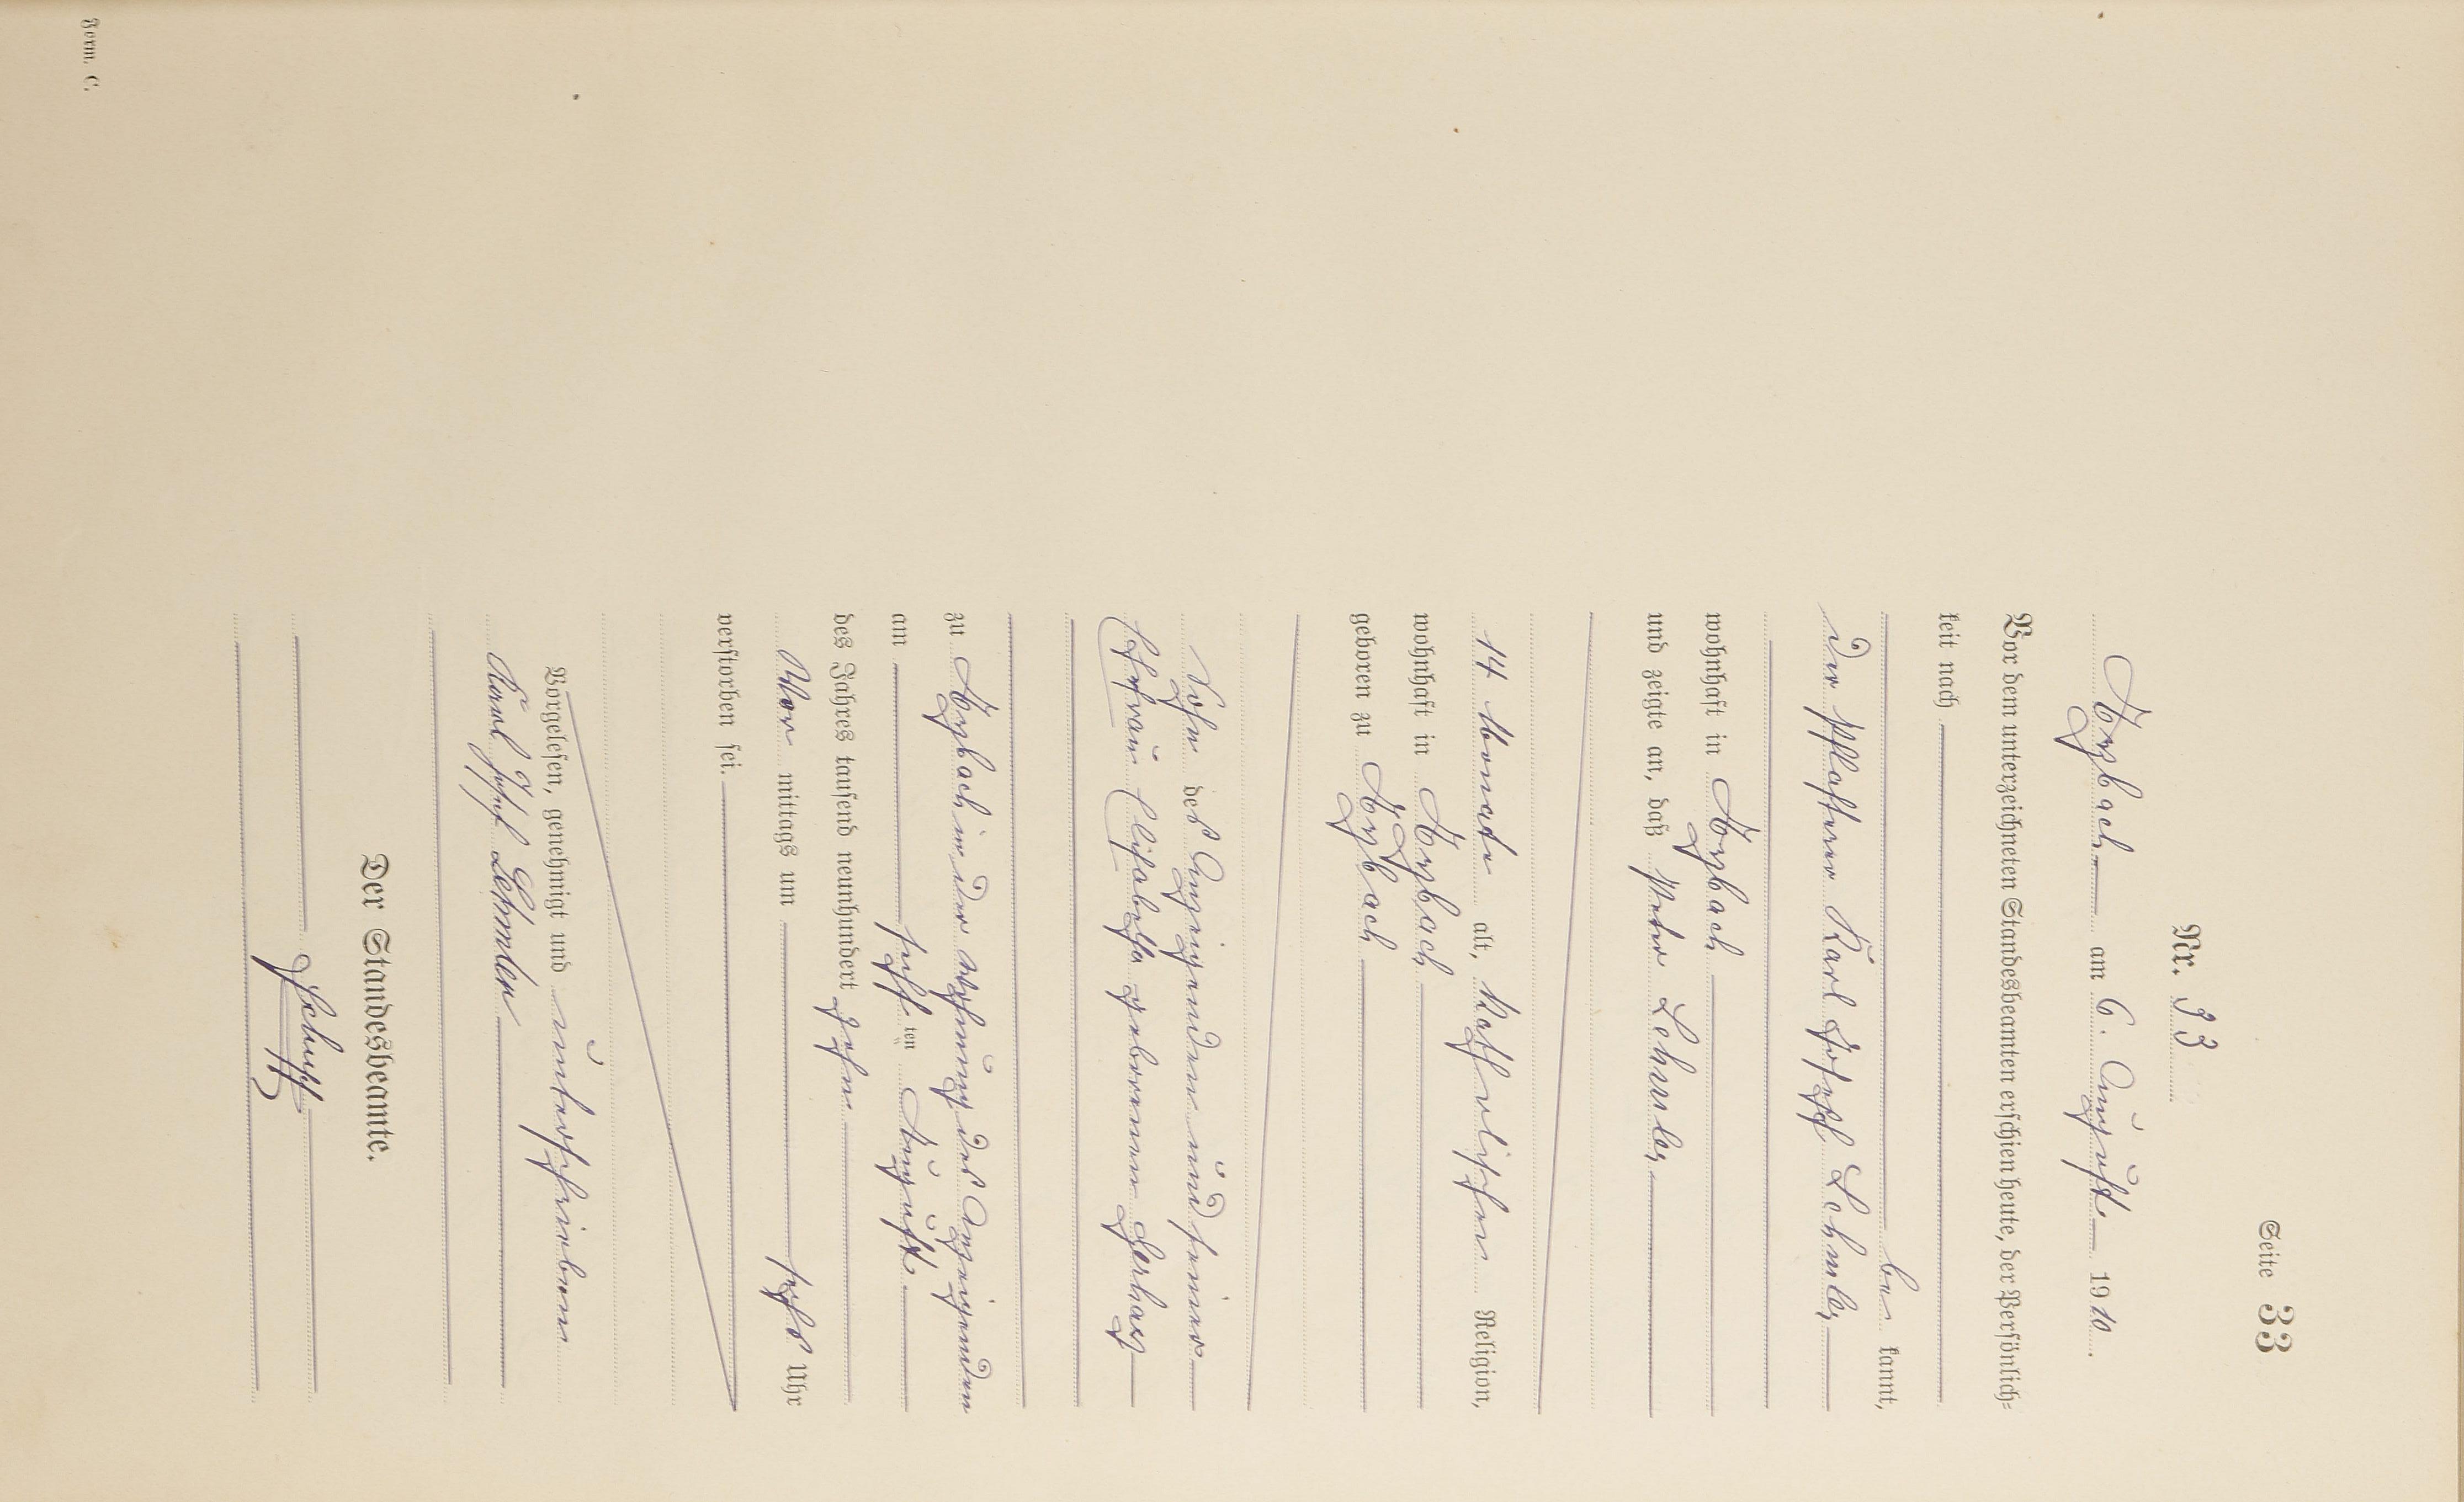 Seite 33
Nr. 33
Arzbach am 6. August 1910.
Vor dem unterzeichneten Standesbeamten erschien heute, der Persönlich-
keit nach
be kannt,
der Pflasterer Karl Josef Lehmler
wohnhaft in Arzbach
und zeigte an, daß Peter Lehmler
14 Monate alt, Katholischen Religion,
wohnhaft in Arzbach
geboren zu Arzbach
Sohn des Anzeigenden und seiner
Ehefrau Elisabetha geborenen Gerharz
zu Arzbach in der Wohnung des Anzeigenden
am ten August
des Jahres tausend neunhundert zehn
Vor mittags um sechs Uhr
verstorben sei.
Vorgelesen, genehmigt und unterschrieben
Karl Josef Lehmler
Der Standesbeamte.
Form. C.